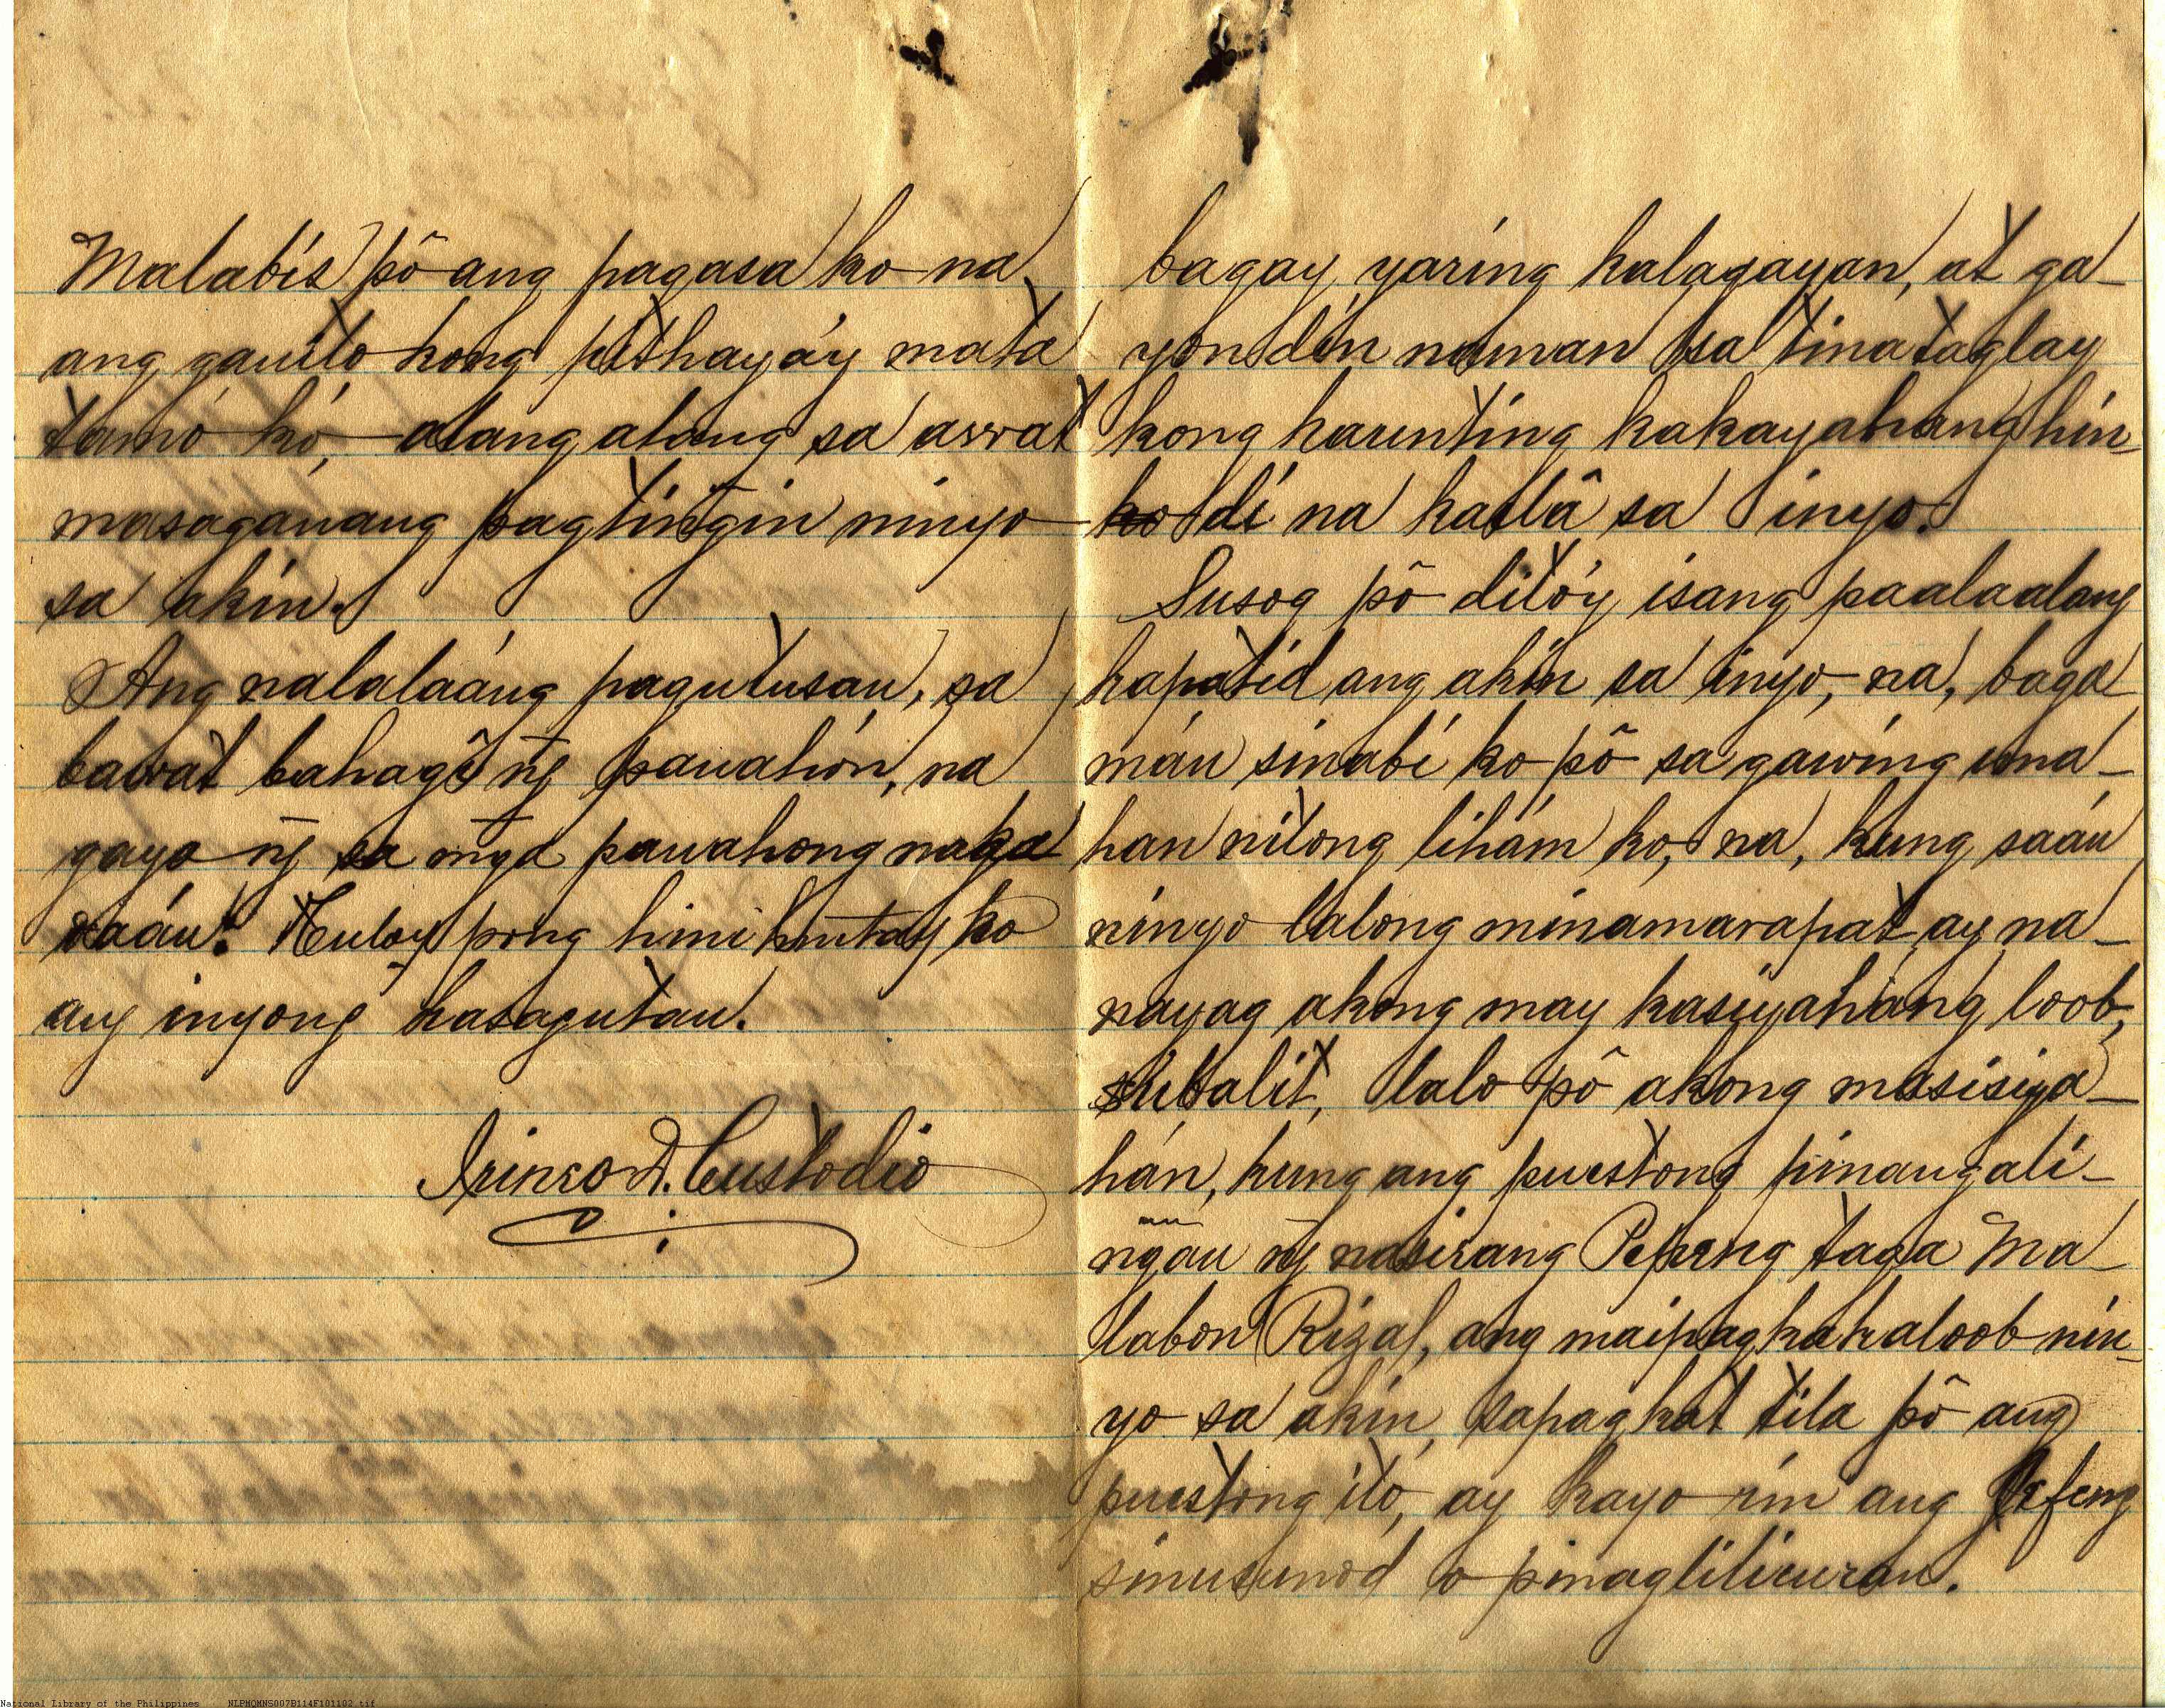 Malabis pô ang pagasa ko na
ang ganito kong pithaya'y mata
tamó kó, alang alang sa awat
masaganang pagtingin ninyo
sa akin.
Ang nalalaáng pagutusan, sa
bawat bahagi ng̃ panahón, na
gaya ng̃ sa mg̃a panahong naka
raán. Tuloy pong hinihintay ko
ang inyong kasagutan.
Irineo D. Custodio
bagay yaring kalagayan, at ga-
yon din naman sa tinataglay
kong kaunting kakayahang hin-
di na kailâ sa inyo.
Susog pô dito'y isang paalaalang
kapatid ang akin sa inyo, na, baga
mán sinabi ko pô sa gawing una-
han nitong lihám ko, na, kung saán
ninyo lalong minamarapat, ay na-
nayag akong may kasiyahang loob,
subalit, lalo pô akong masisiya-
hán, kung ang puestong pinangali-
ng̃an ng̃ nasirang Pepeng taga Ma-
labon Rizal, ang maipagkakaloob nin-
yo sa akin, sapagkat tila pô ang
puestong itó, ay kayo rin ang Jefeng
sinusunod o pinaglilicuran.
National Library of the Philippines NLPMQMNS007B114F101102.tif